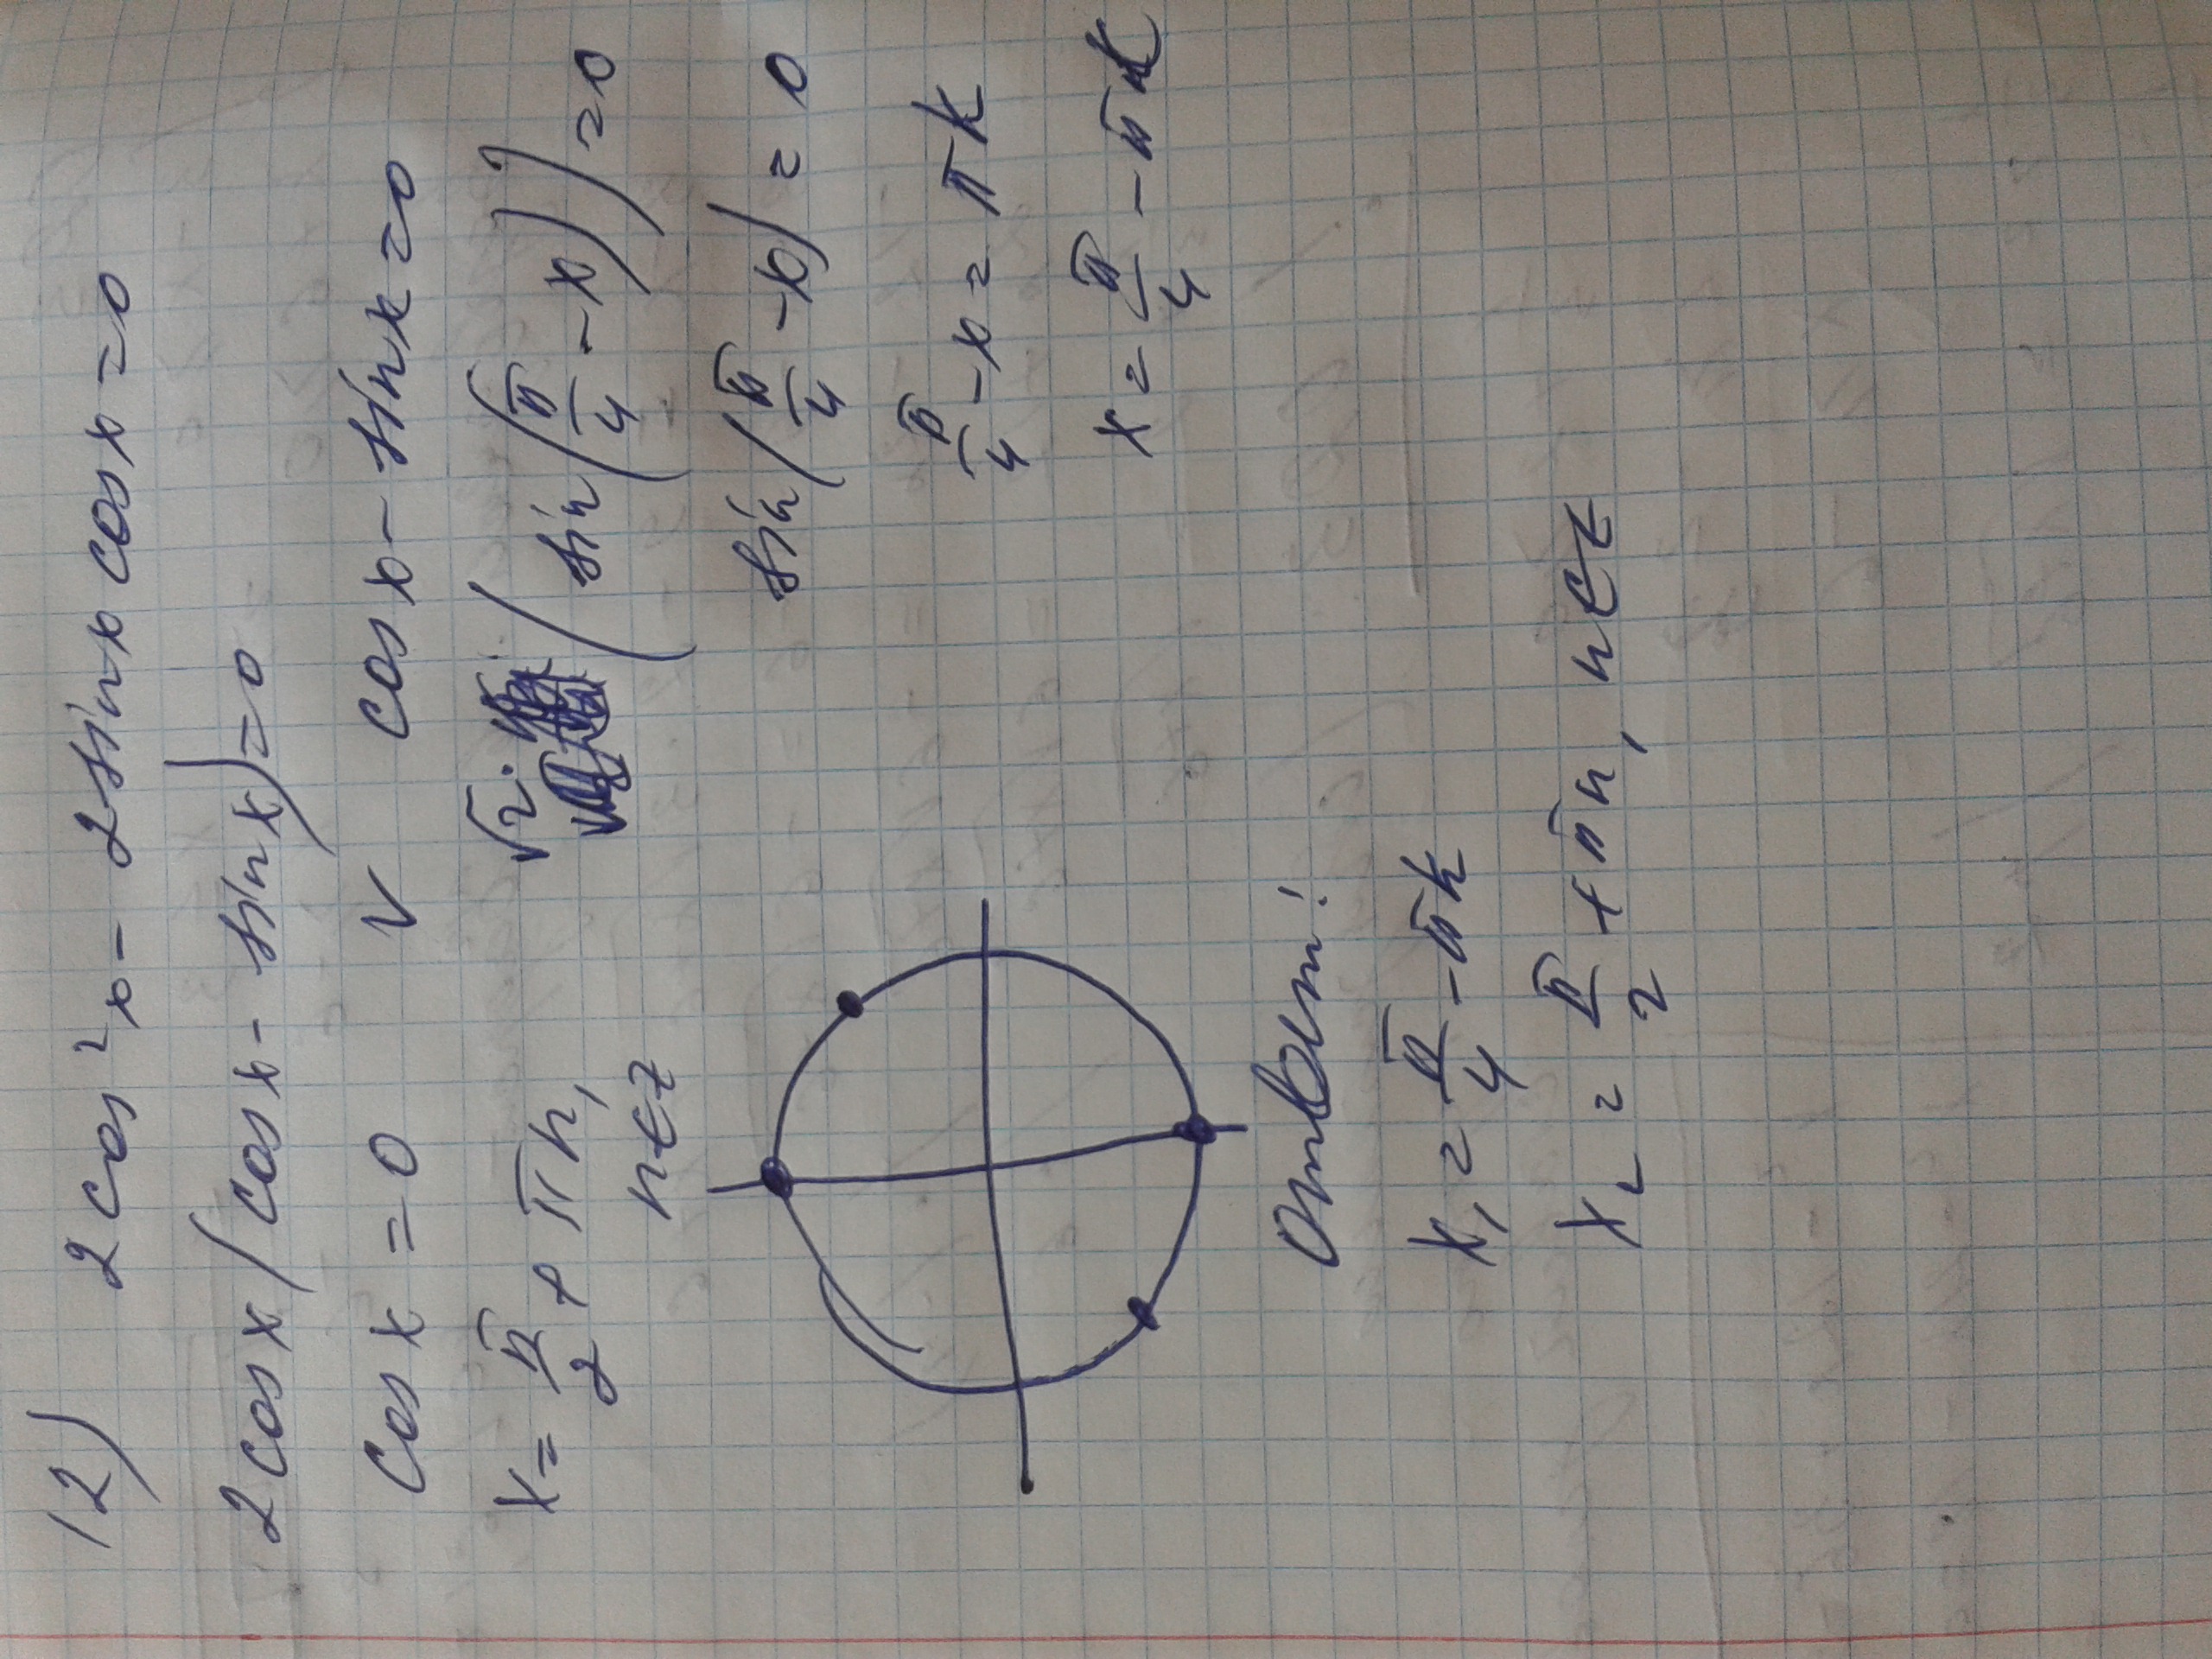 12) 2cos²x - 2sinx cosx = 0
2cosx(cosx - sinx) = 0
cosx = 0 V cosx - sinx = 0
x = π/2 + πn, n∈Z
√2·(sin(π/4 - x)) = 0
sin(π/4 - x) = 0
π/4 - x = πk
x = π/4 - πk
Ответ:
x₁ = π/4 - πk
x₂ = π/2 + πn, n∈Z